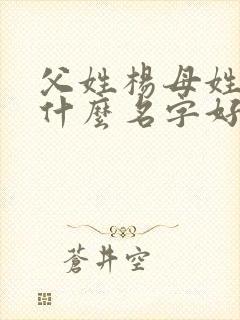 父姓楊母姓
什麼名字好
蒼井空